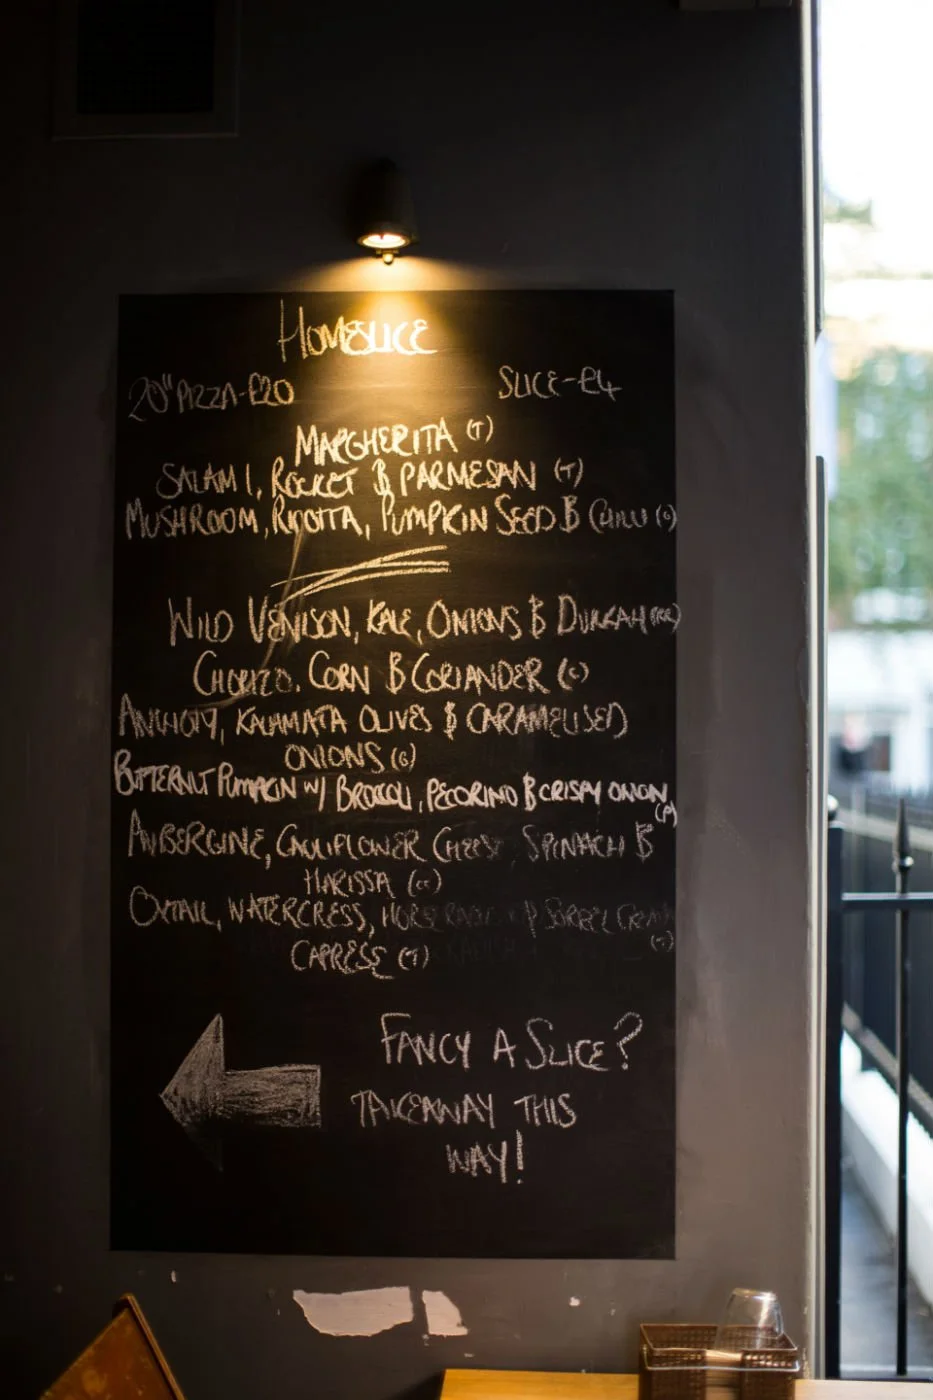 HOMESLICE
20" PIZZA-£20 SLICE-£4
MARGHERITA (T)
SALAMI, ROCKET & PARMESAN (T)
MUSHROOM, RICOTTA, PUMPKIN SEED & CHILLI (C)
WILD VENISON, KALE, ONIONS & DUKKAH
CHORIZO, CORN & CORIANDER (C)
ANCHOVY, KALAMATA OLIVES & CARAMELISED
ONIONS (G)
BUTTERNUT PUMPKIN W/ BROCCOLI, PECORINO & CRISPY ONION
(P)
AUBERGINE, CAULIFLOWER CHEESE, SPINACH &
HARISSA
OXTAIL, WATERCRESS, HORSERADISH SORREL CREAM
(T)
CAPRESE (T)
FANCY A SLICE?
TAKEAWAY THIS
WAY!